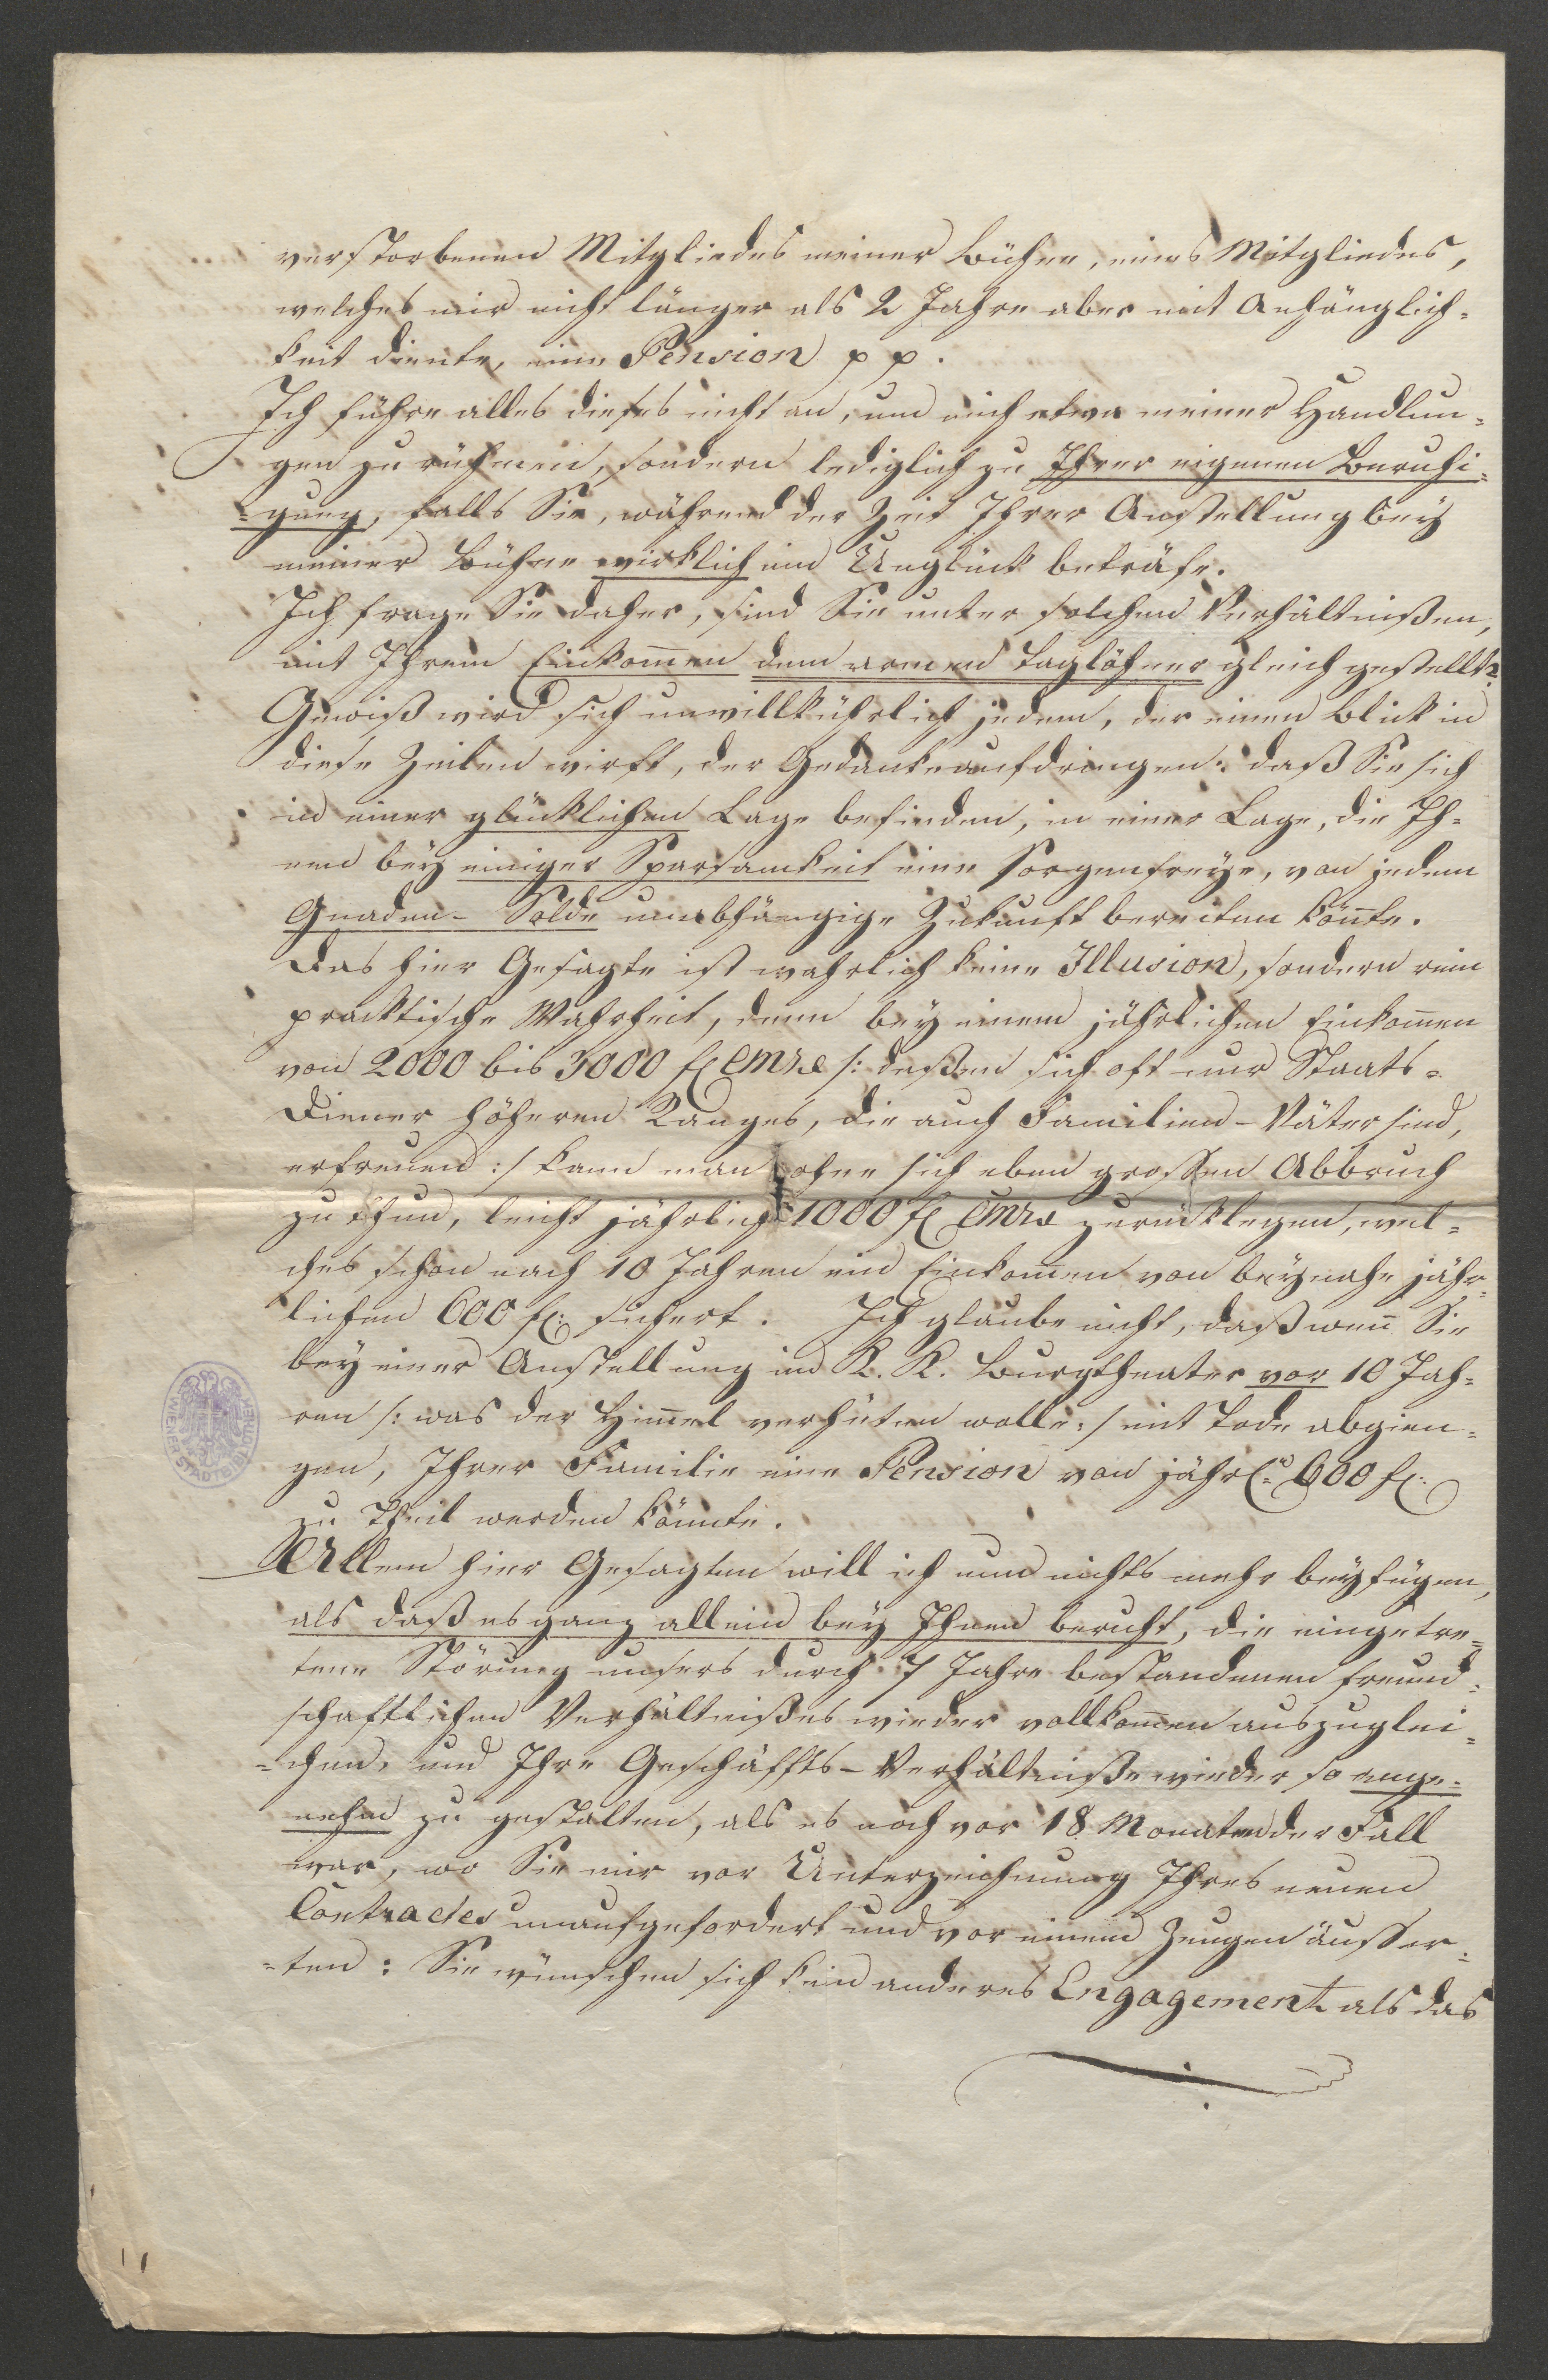 verstorbenen Mitgliedes meiner Bühne, eines Mitgliedes,
welches mir nicht länger als 2 Jahre aber mit Anhänglich-
keit diente, eine Pension pp.
Ich führe alles dieses nicht an, um mich etwa meiner Handlun-
gen zu rühmen, sondern lediglich zu Ihrer eigenen Beruhi-
-gung, falls Sie, während der Zeit Ihrer Anstellung bey
meiner Bühne wirklich ein Unglück beträfe.
Ich frage Sie daher, sind Sie unter solchen Verhältnißen,
mit Ihrem Einkom̅en dem armen Taglöhner gleich gestellt?
Gewiß wird sich unwillkührlich jedem, der einen Blick in
diese Zeilen wirft, der Gedanke aufdringen: daß Sie sich
in einer glücklichen Lage befinden, in einer Lage, die Ih-
nen bey einiger Sparsamkeit eine sorgenfreye, von jedem
Gnaden-Solde unabhängige Zukunft bereiten kön̅te.
Das hier Gesagte ist wahrlich keine Illusion, sondern rein
pracktische Wahrheit, denn bey einem jährlichen Einkom̅en
von 2000 bis 3000 fl CMze /: deßen sich oft nur Staats-
Diener höheren Ranges, die auch Familien-Väter sind,
erfreuen :/ kann man ohne sich eben grossen Abbruch
zu thun, leicht jährlich 1000 fl CMze zurücklegen, wel-
ches schon nach 10 Jahren ein Einkom̅en von beynahe jähr-
lichen 600 fl: sichert. Ich glaube nicht, daß wen̅ Sie
bey einer Anstellung im K. K. Burgtheater vor 10 Jah-
ren /: was der Him̅el verhüten wolle :/ mit Tode abgien-
gen, Ihrer Familie eine Pension von jährl: 600 fl:
zu Theil werden könnte.
Allem hier Gesagten will ich nun nichts mehr beyfügen,
als daß es ganz allein bey Ihnen beruht, die eingetre-
tene Störung unsers durch 7 Jahre bestandenen freund-
schaftlichen Verhältnißes wieder vollkom̅en auszuglei-
-chen, und Ihre Geschäffts-Verhältniße wieder so ange-
nehm zu gestalten, als es noch vor 18 Monaten der Fall
war, wo Sie mir vor Unterzeichnung Ihres neuen
Contractes unaufgefordert und vor einem Zeugen äusser-
-ten: Sie wünschen sich kein anderes Engagement als das